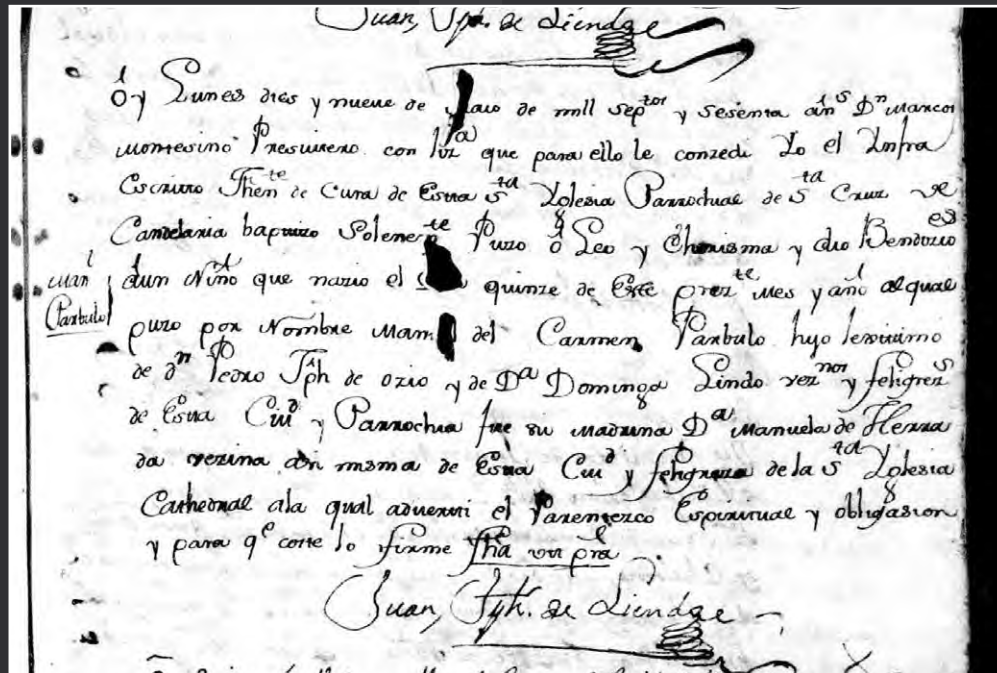 Juan, Jph. de Liendse
oy Lunes dies y nueve de Maio de mill septos y sesenta años Dn Marcos
Montesino Presvitero con liza que para ello le conzedi Yo el Infra
Escrito Thente de Cura de Esta Sta Yglesia Parrochial de Sta Cruz de
Candelaria baptizo Solenemte Puzo oleo y Chrisma y dio Bendizies
â un Niño que nazio el quinze de Este prezte Mes y año al qual
Man l
Parbulo
puzo por Nombre Man l del Carmen Parbulo hijo lexitimo
de dn Pedro Jph de ozio y de Da Dominga Lindo veznos y feligrezs
de Esta Ciud y Parrochia fue su Madrina Da Manuela de Herra
da vezina asi misma de Esta Ciud y feligreza de la Sta Yglesia
Cathedral ala qual adverti el Parentezco Espiritual y obligasion
y para qe coste lo firme fha ut pra
Juan, Jph. de Liendse